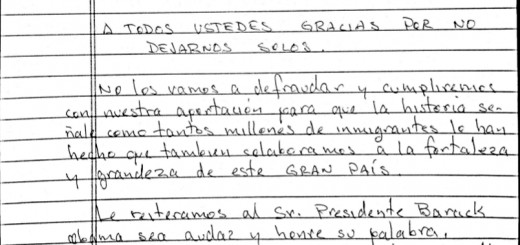 A TODOS USTEDES GRACIAS POR NO
DEJARNOS SOLOS.
No los vamos a defraudar y cumpliremos
con nuestra aportación para que la historia se-
ñale como tantos millones de inmigrantes lo han
hecho que tambien colaboramos a la fortaleza
y grandeza de este GRAN PAÍS.
Le reiteramos al Sr. Presidente Barack
obama sea audaz y honre su palabra.